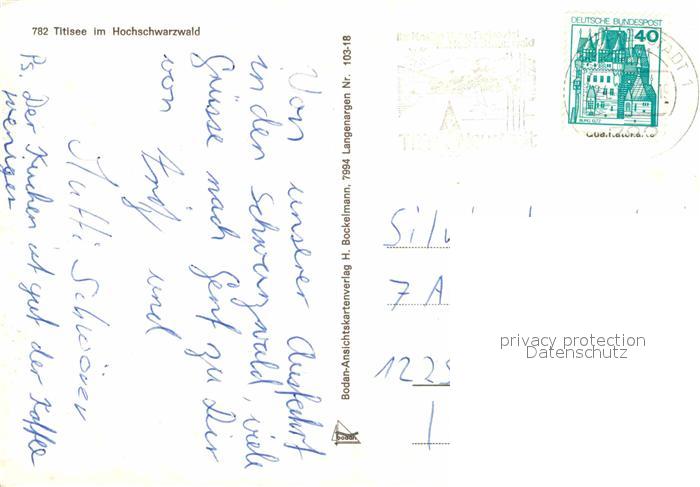 782 Titisee im Hochschwarzwald
Von unserer Ausfahrt
in den Schwarzwald, viele
Grüsse nach Genf zu Dir
von und
Mutti
Ps. Der Kuchen ist gut der Kaffee
weniger
Bodan-Ansichtskartenverlag H. Bockelmann, 7994 Langenargen Nr. 103-18
bodan
DEUTSCHE BUNDESPOST
40
BURG ELTZ
STADT 1
Silv
7 A
122
privacy protection
Datenschutz